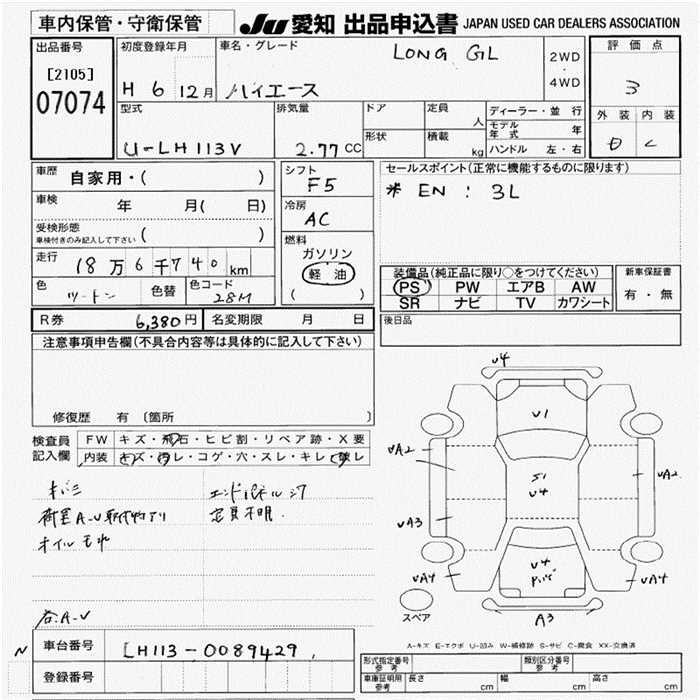 車内保管・守衛保管
JU 愛知 出品申込書 JAPAN USED CAR DEALERS ASSOCIATION
出品番号
[2105]
07074
初度登録年月
H 6 12月
車名・グレード
LONG GL
ハイエース
2WD
・
4WD
評価点
3
外装 内装
D C
型式
U-LH113V
排気量
2.77 CC
ドア
定員
人
形状
積載
kg
ディーラー・並行
モデル年式 年
ハンドル 左・右
車歴
自家用・( )
車検
年 月( 日)
受検形態
車検付きのみ記入して下さい ( )
走行
18万6千740km
色
ツートン
色替
色コード
28M
シフト
F5
冷房
AC
燃料
ガソリン
軽油
( )
セールスポイント(正常に機能するものに限ります)
* EN : 3L
装備品(純正品に限り○をつけてください)
PS PW エアB AW
SR ナビ TV カワシート
新車保証書
有・無
後日品
R券
6,380円
名変期限 月 日
注意事項申告欄(不具合内容等は具体的に記入して下さい)
修復歴 有 〔箇所 〕
検査員
記入欄
FW キズ・飛石・ヒビ割・リペア跡・X要
内装 キズ・汚レ・コゲ・穴・スレ・キレ・破レ
サビ
エンドパネルシワ
荷室A-U 取付物アリ
定員不明.
オイルモレ
右A-U
U4
U1
UA2
S1
U4
UA2
UA3
UA4
U4
UA4
スペア
A3
A-キズ E-エクボ U-凹み W-補修跡 S-サビ C-腐食 XX-交換済
N
車台番号
LH113-0089429
登録番号
形式指定番号
参考
類別区分番号
参考
車庫証明用
参考
長さ cm
幅 cm
高さ cm